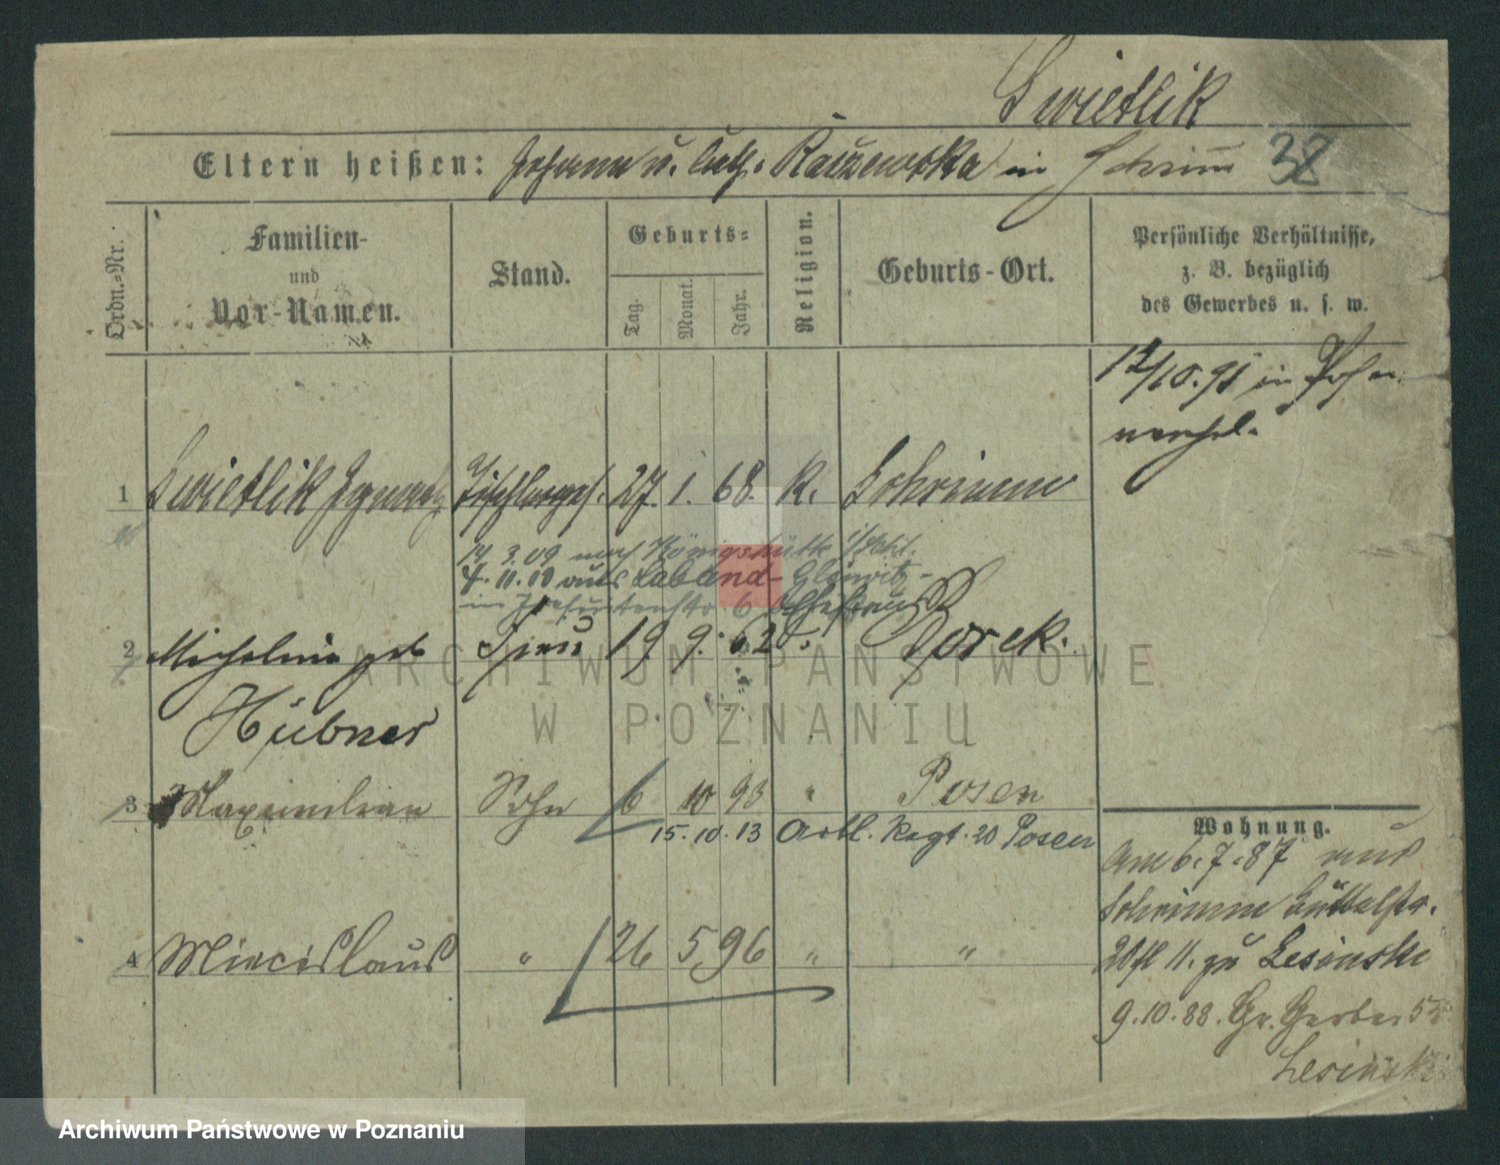 Swietlik
Eltern heißen: Johann u. Cath. Raczewska in Schrim 38
Ordn.-Nr.
Familien-
und
Vor-Namen.
Stand.
Geburts-
Tag.
Monat.
Jahr.
Religion.
Geburts-Ort.
Persönliche Verhältnisse,
z. B. bezüglich
des Gewerbes u. s. w.
10.91 in Posen
1 Swietlik Ignatz Tischlerges. 27. 1. 68. K. Schrimm
14. 3. 09 nach Königshütte
11. 10 aus Laband- Gleiwitz-
in 6
2 Michelina geb Frau 19 9. 62 Borek.
Hübner
3 Maximilian Sohn 6 10 90 " Posen
15. 10. 13 Artl. Regt. 20 Posen
4 Miecislaus " 26 5 96 " "
Wohnung.
Am 6. 7. 87 aus
Schrimm Büttelstr.
20 II. zu Lesinski
9. 10. 88. Gr. Gerber 52
Lesinski
ARCHIWUM PAŃSTWOWE
W POZNANIU
Archiwum Państwowe w Poznaniu